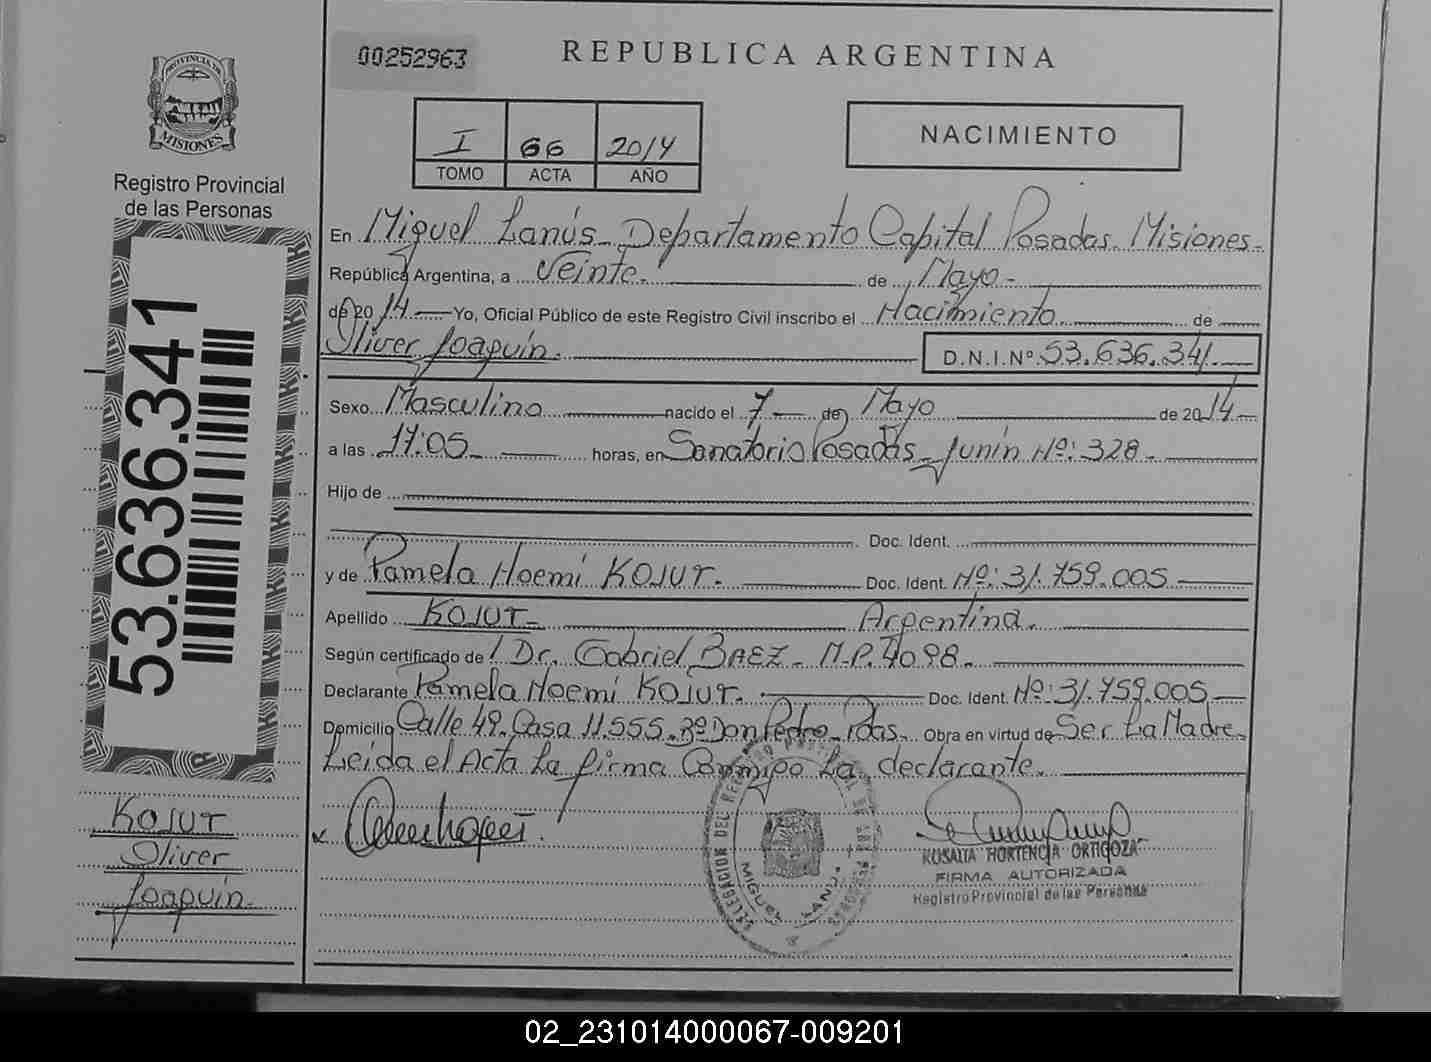 00252963
REPUBLICA ARGENTINA
PROVINCIA DE
MISIONES
Registro Provincial
de las Personas
I 66 2014
TOMO ACTA AÑO
NACIMIENTO
En Miguel Lanús - Departamento Capital Posadas Misiones -
República Argentina, a Veinte. de Mayo -
de 2014 Yo, Oficial Público de este Registro Civil inscribo el Nacimiento de
Oliver Joaquín. D.N.I.Nº 53.636.341
Sexo Masculino nacido el 7 de Mayo de 2014
a las 17:05 horas, en Sanatorio Posadas - Junín Nº: 328 -
Hijo de
Doc. Ident.
y de Pamela Noemí KOJUT. Doc. Ident. Nº: 31.759.005
Apellido KOJUT - Argentina.
Según certificado de Dr. Gabriel BAEZ - M.P. 4098.
Declarante Pamela Noemí KOJUT. Doc. Ident. Nº: 31.759.005
Domicilio Calle 49. Casa 11.555. Bº Don Pedro - Pdas. Obra en virtud de Ser La Madre
Leida el Acta La firma Conmigo La declarante.
53.636.341
KOJUT
Oliver
Joaquín
DELEGACION DEL REGISTRO PROVINCIAL DE LAS PERSONAS
MIGUEL LANUS
ROSALIA HORTENCIA ORTIGOZA
FIRMA AUTORIZADA
Registro Provincial de las Personas
02_231014000067-009201